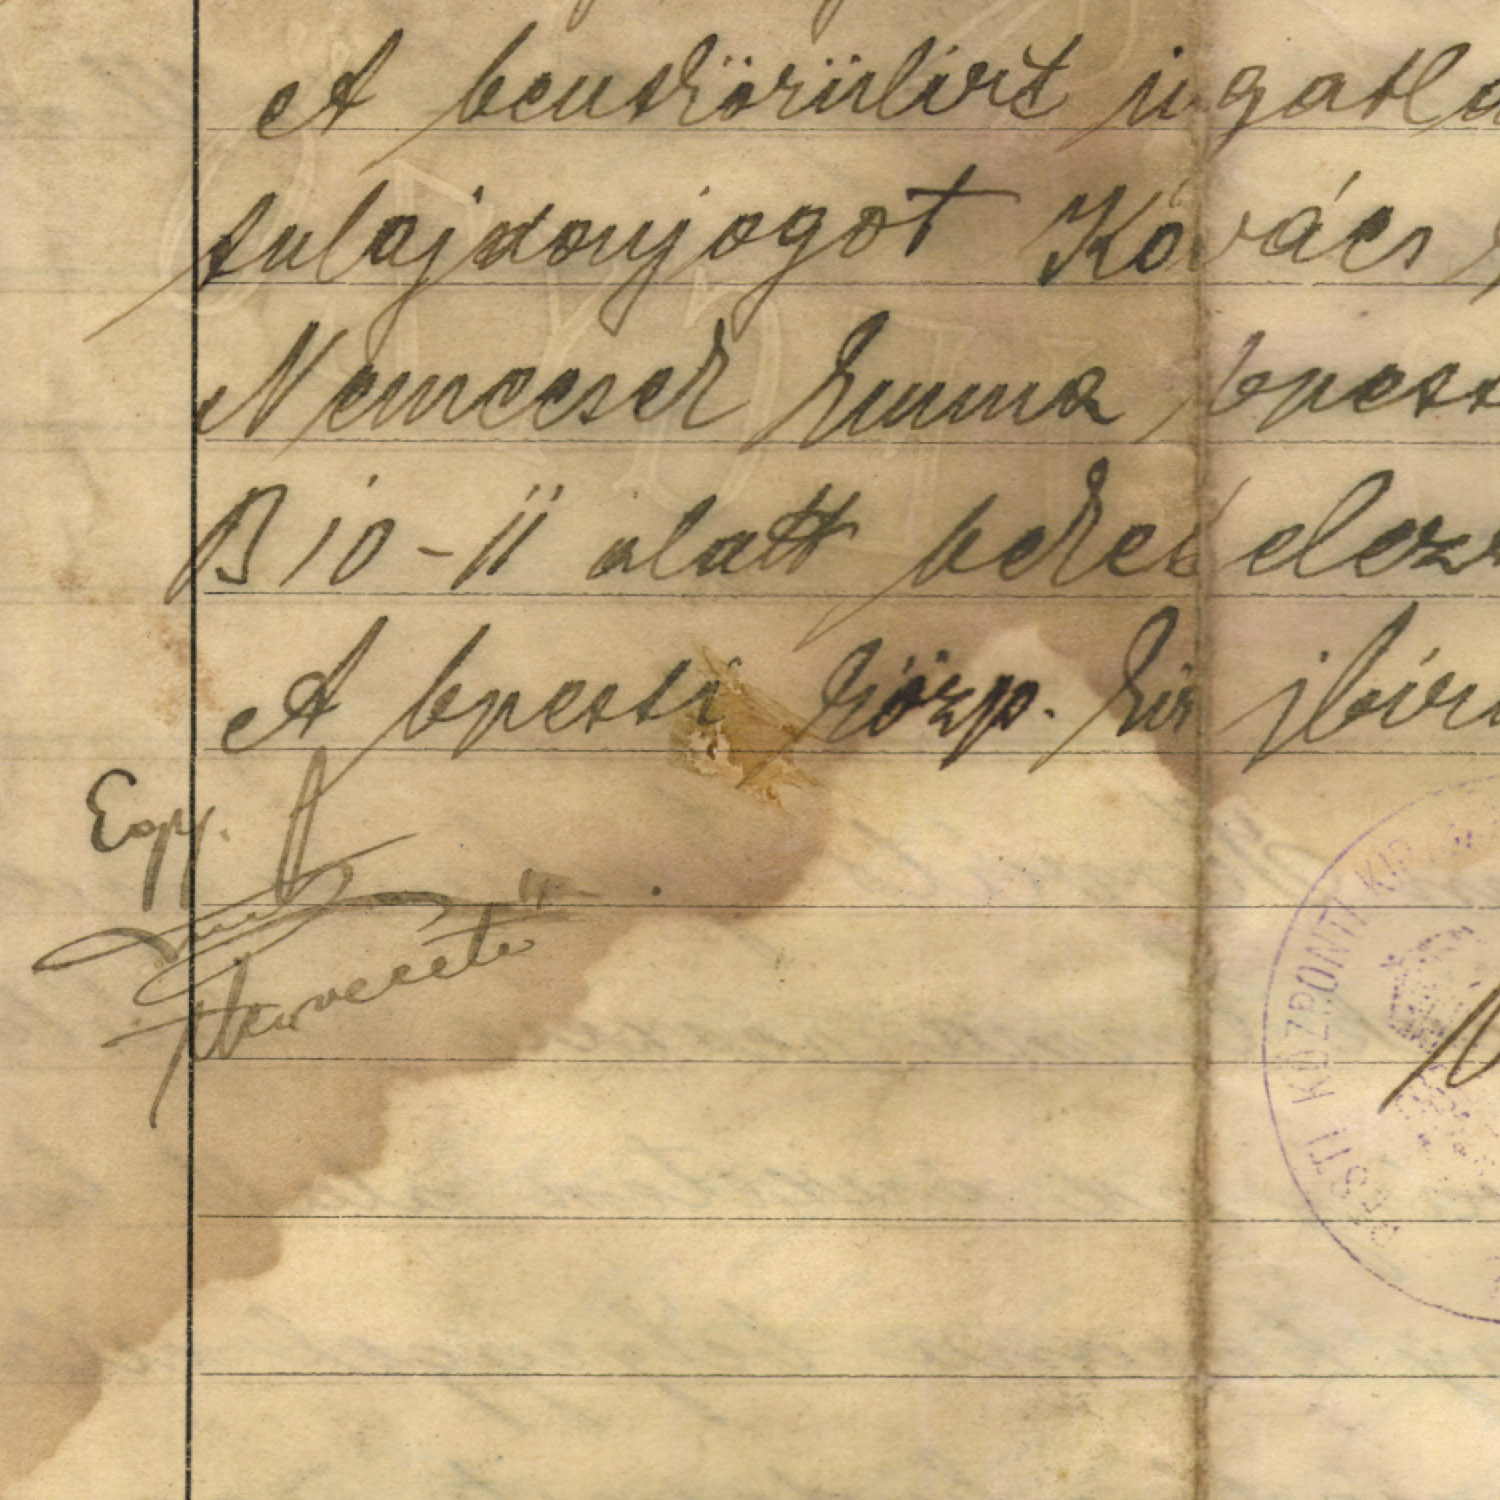 A bentkörülírt ingatla
tulajdonjogot Kovács
Nemecsek Emma bpest
B 10-11 alatt bekebelezt
A bpesti közp. kir jbíró
Egy.
PESTI KÖZPONTI KIR